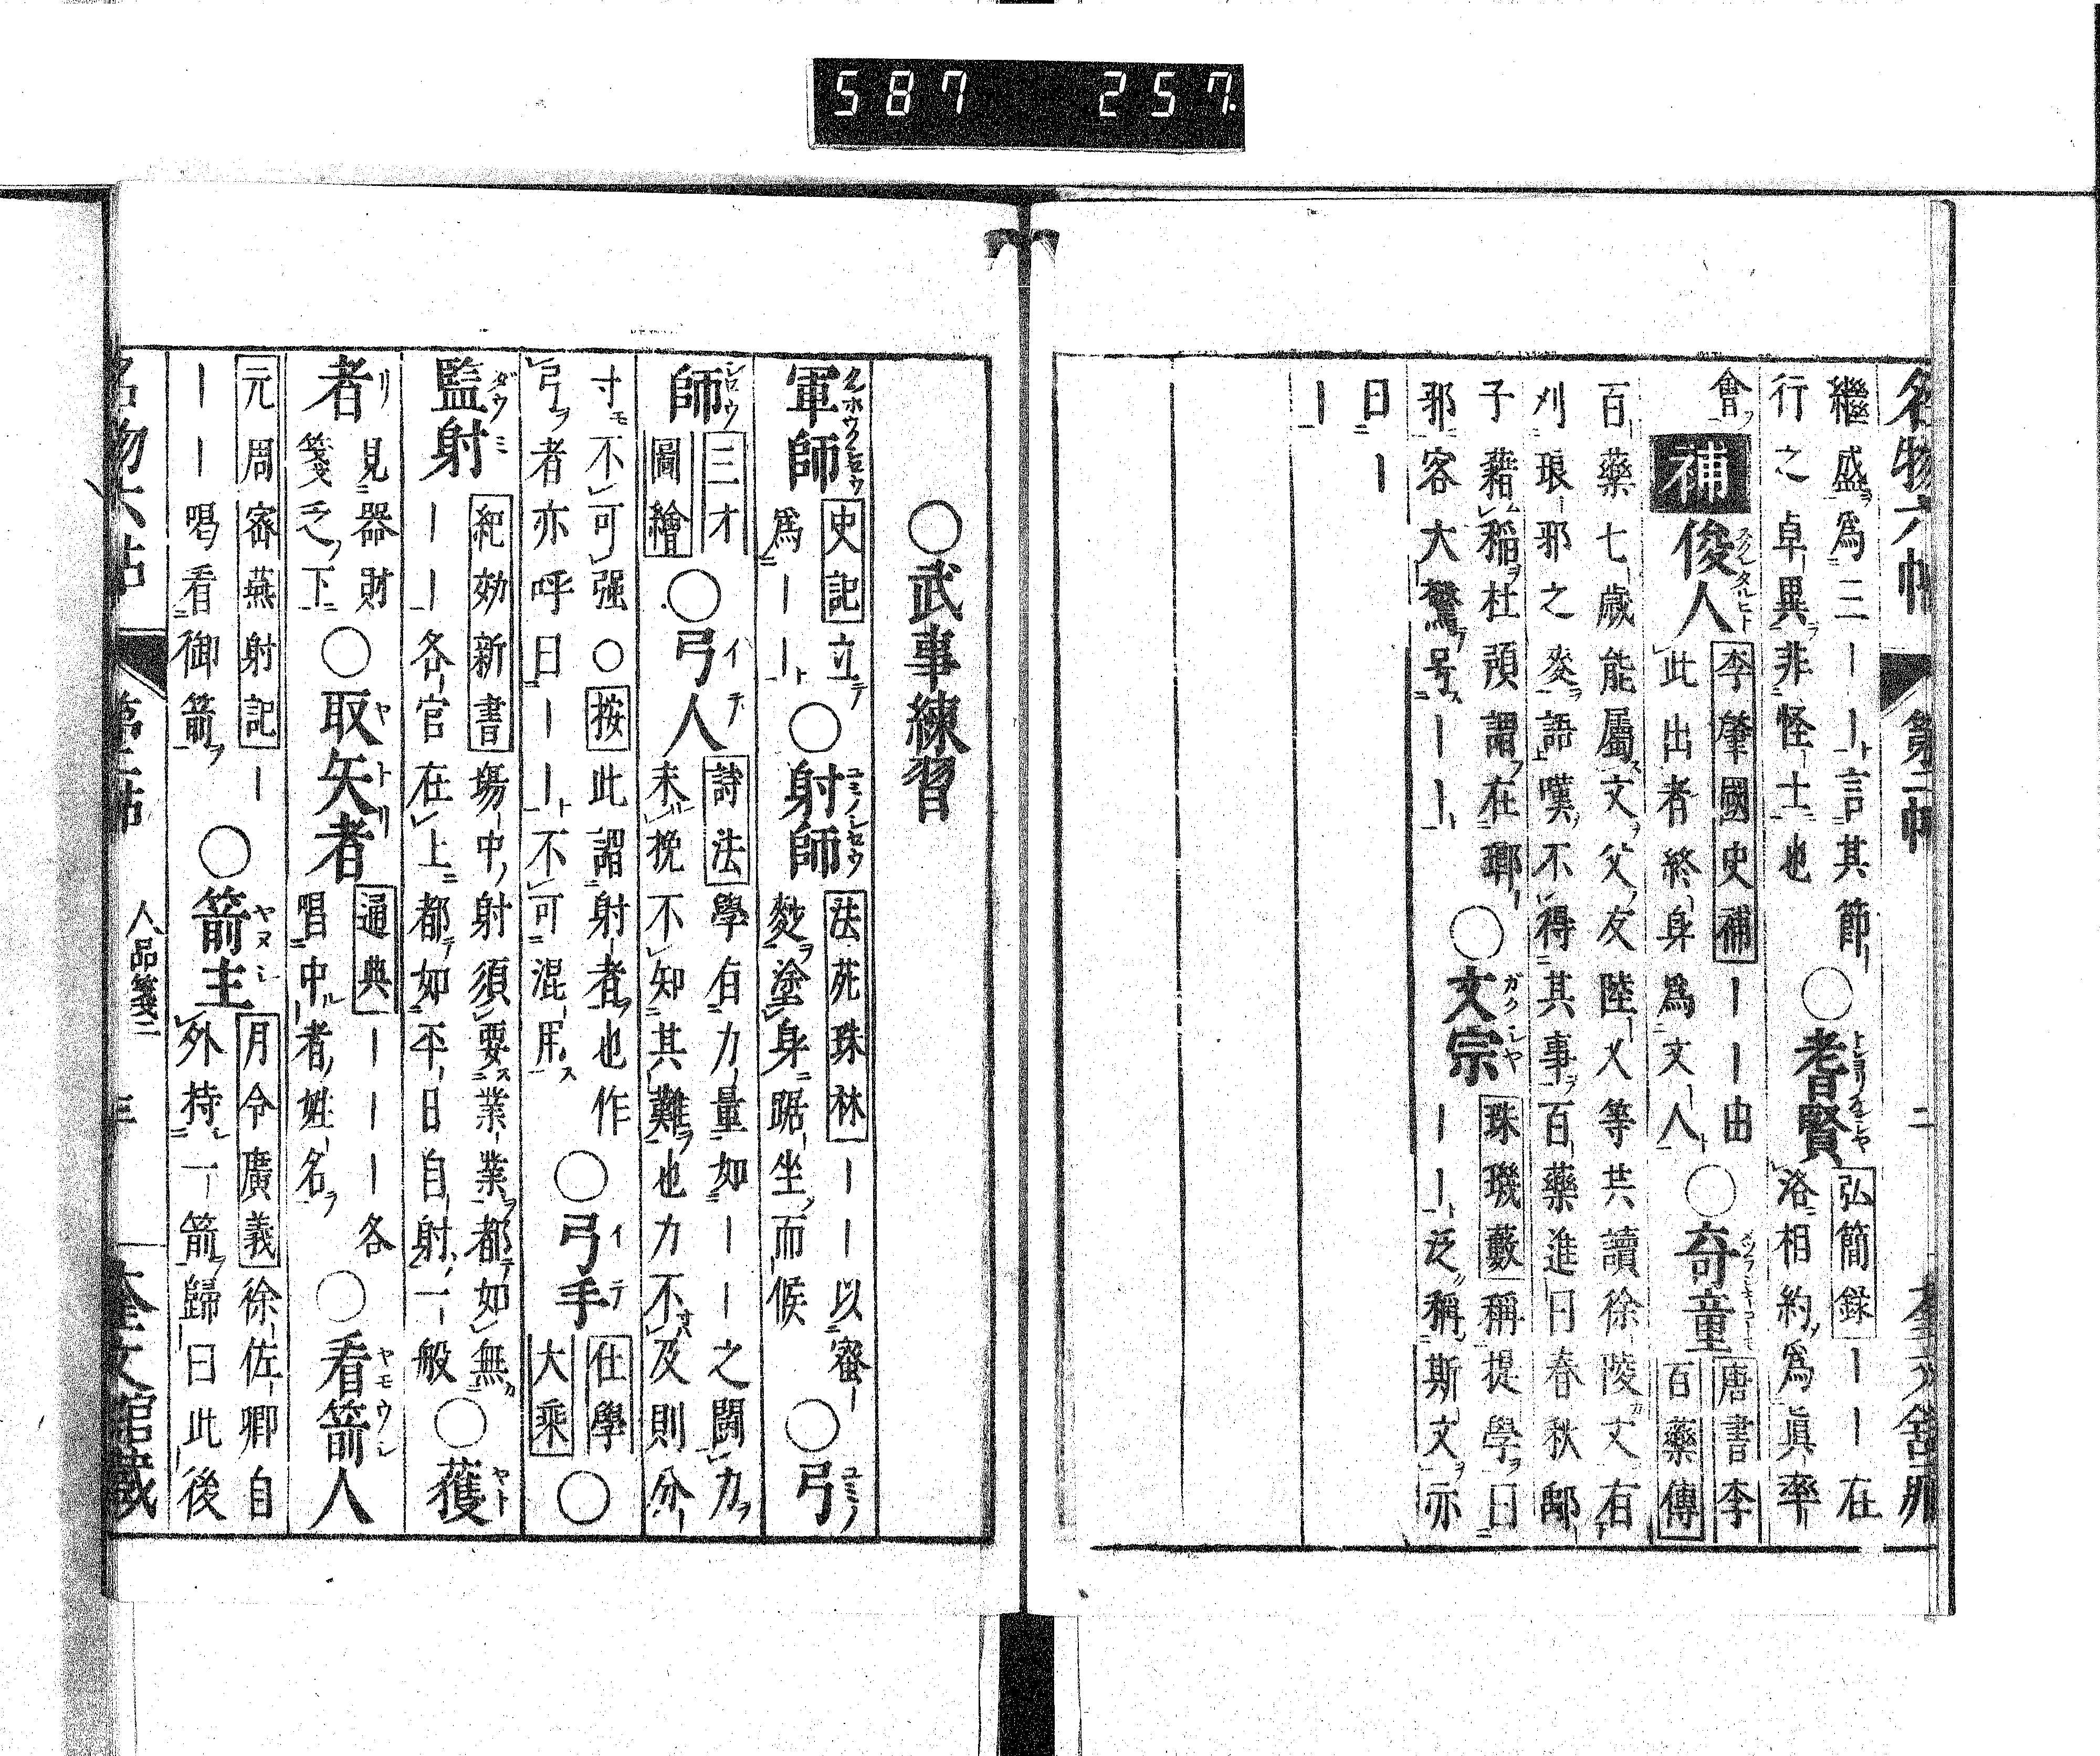 587 257
名物六帖 第二帖
繼盛爲三｜｜言其節
行之卓異非怪士也
○耆賢
弘簡録｜｜在
洛相約爲眞率
會
補 俊人
李肇國史補｜｜由
此出者終身爲文人
○奇童
唐書李
百藥傳
百藥七歳能屬文父友陸乂等共讀徐陵文有
刈琅邪之麥語嘆不得其事百藥進曰春秋鄅
子藉稲杜預謂在瑯
邪客大驚号｜｜
○文宗
珠璣藪 稱提學曰
｜｜泛稱斯文亦
曰｜
｜
○武事練習
軍師
史記 立
爲｜｜
○射師
法苑珠林｜｜以蜜
麨塗身踞坐而候
○弓
師
三才
圖繪
○弓人
詩法 學有力量如｜｜之闘力
未挽不知其難也力不及則分
寸不可强○按此謂射者也作
弓者亦呼曰｜｜不可混用
○弓手
仕學
大乘
○
監射
紀効新書 塲中射須要業業都如無
｜｜各官在上都如平日自射一般
○獲
者
見器財
箋乏下
○取矢者
通典｜｜｜各
唱中者姓名
○看箭人
元周密燕射記｜
｜｜唱看御箭
○箭主
月令廣義 徐佐卿自
外持一箭歸曰此後
名物六帖 第二帖 人品箋二 奎文館藏